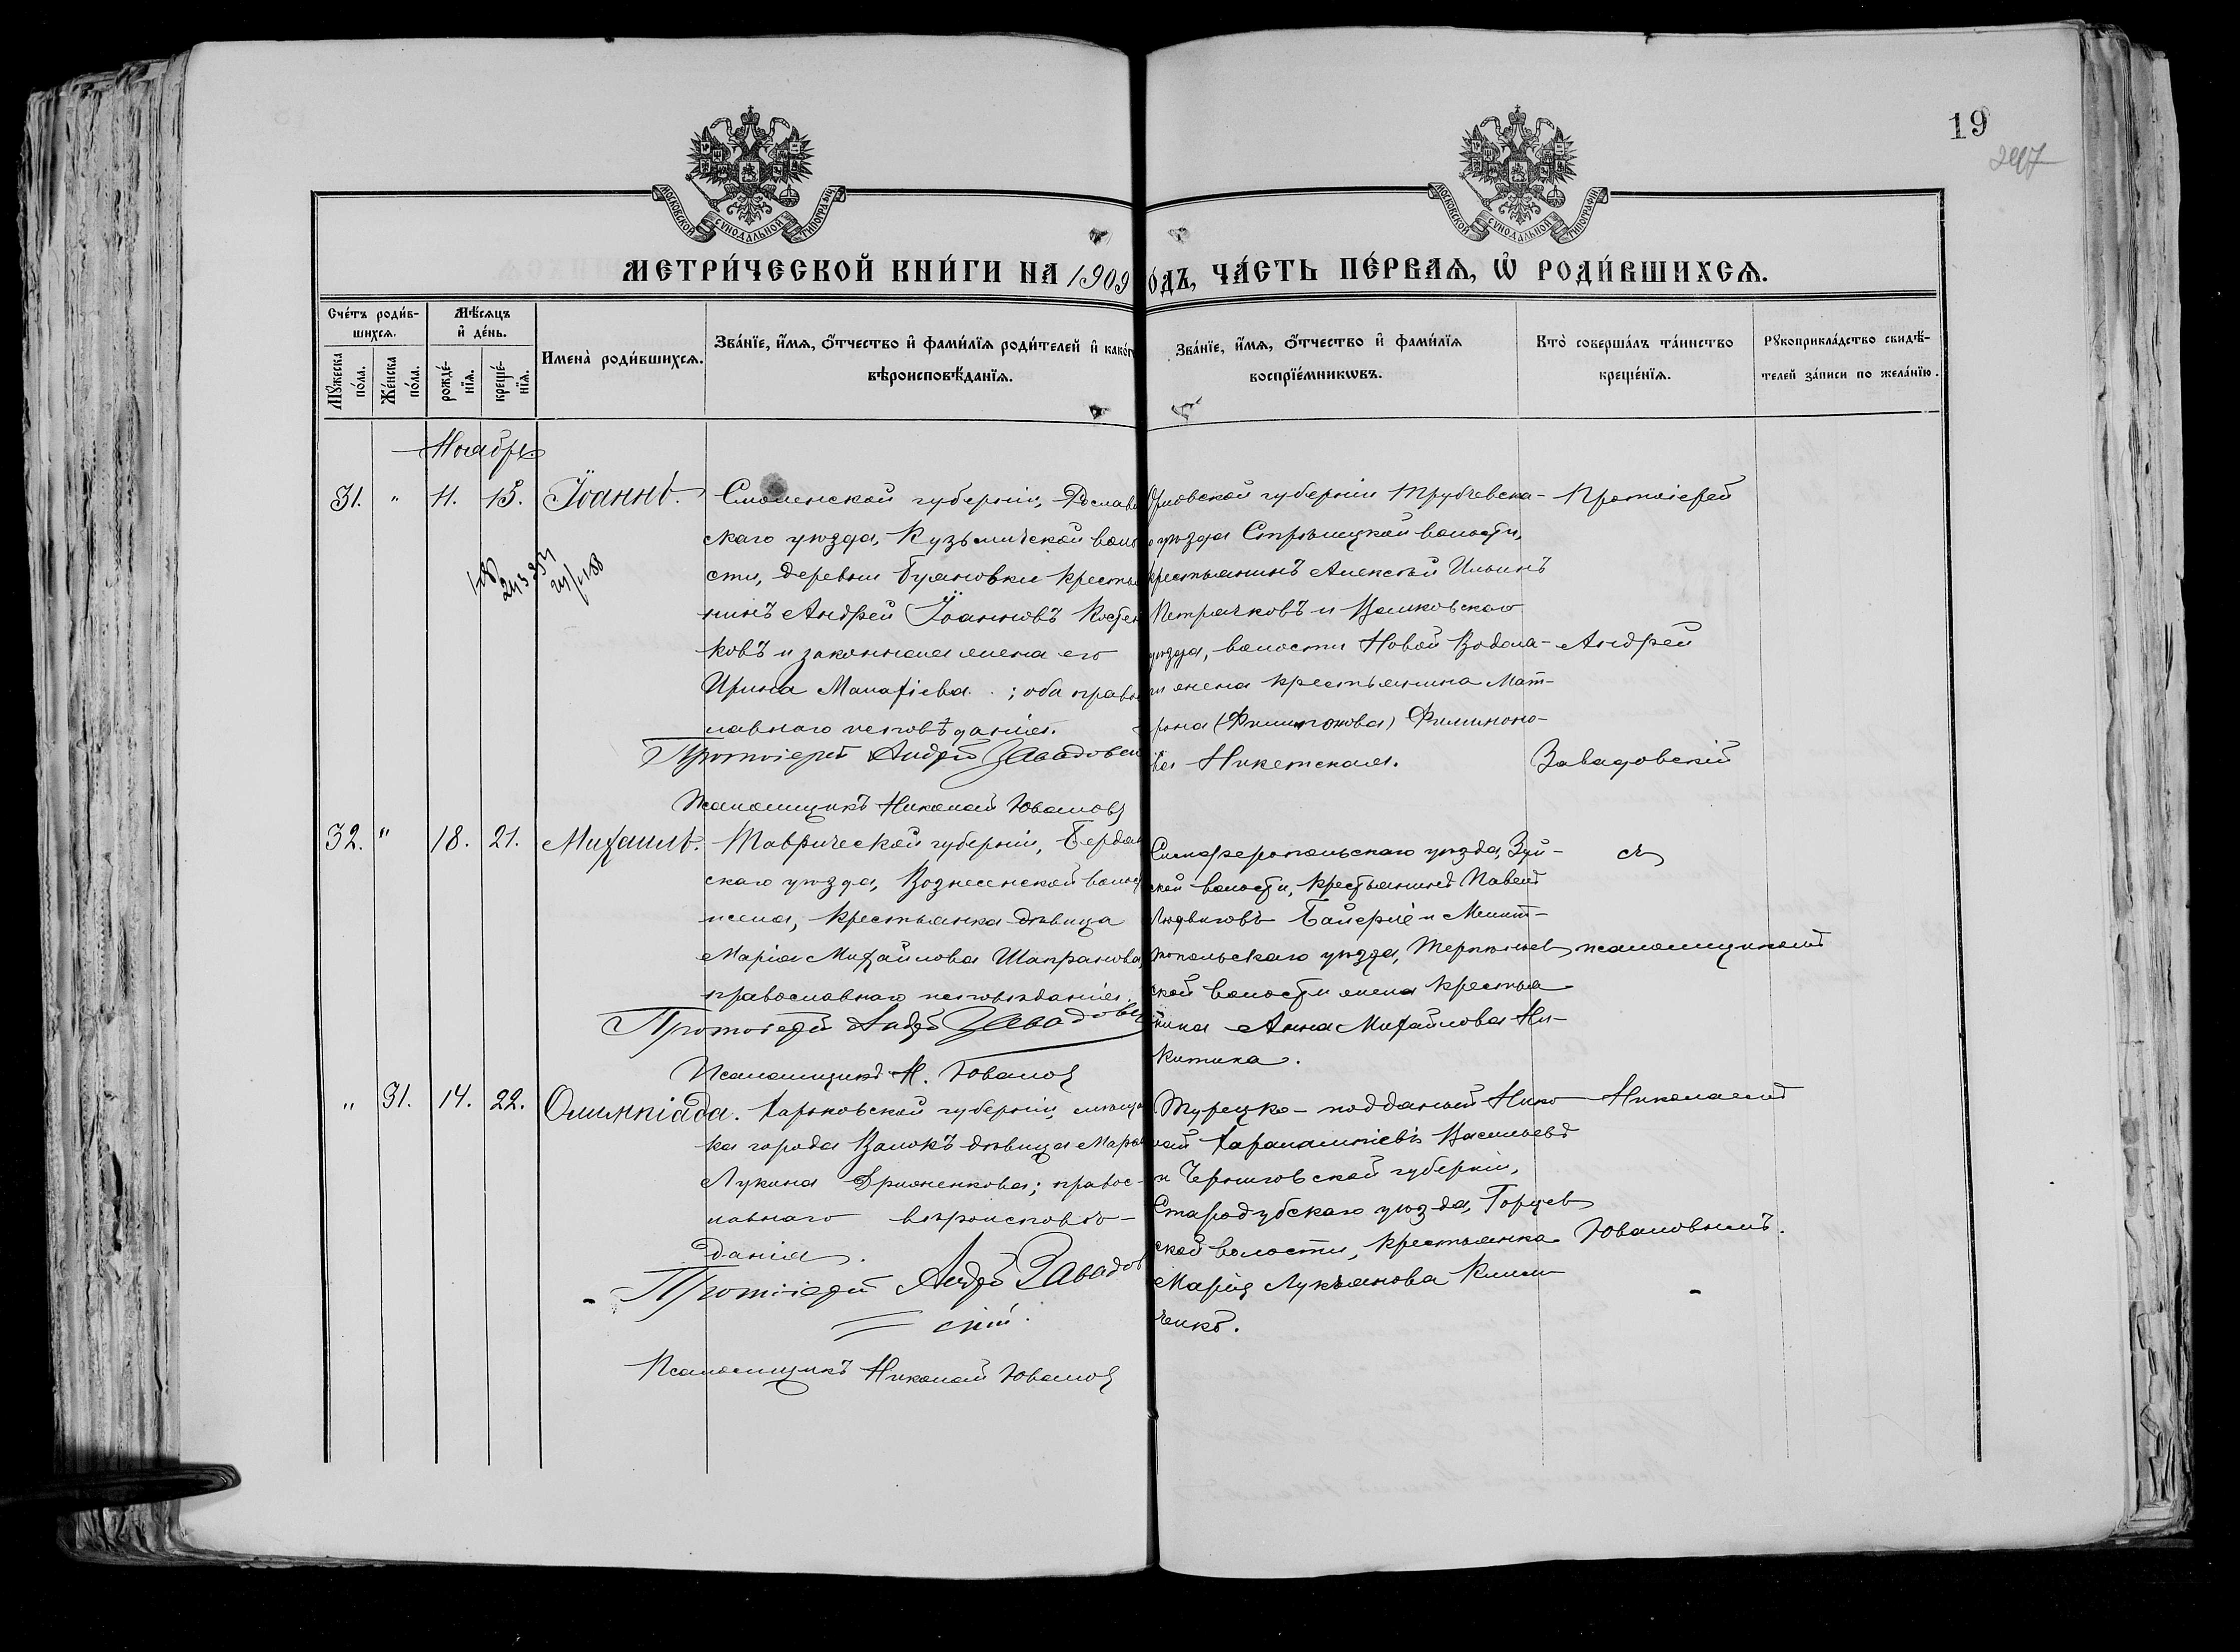 19
297
МОСКОВСКОЙ СѴНОДАЛЬНОЙ ТИПОГРАФІИ
МОСКОВСКОЙ СѴНОДАЛЬНОЙ ТИПОГРАФІИ
МЕТРИ́ЧЕСКОЙ КНИ́ГИ НА 1909
О́ДЪ, ЧА́СТЬ ПЕ́РВАѦ, Ѡ РОДИ́ВШИХСѦ.
Сче́тъ роди́в-
шихсѧ.
Мꙋжеска по́ла.
Же́нска по́ла.
Мѣ́сѧцъ
и҆ де́нь.
рожде́-
нїѧ.
креще́-
нїѧ.
Имена̀ роди́вшихсѧ.
Зва́нїе, и҆́мѧ, ѻ҆́тчество и҆ фами́лїѧ роди́телей и҆ како́г
вѣроисповѣ́данїѧ.
Зва́нїе, и҆́мѧ, ѻ҆́тчество и҆ фами́лїѧ
воспрїе́мникѡвъ.
Кто̀ соверша́лъ та́инство
креще́нїѧ.
Рꙋкоприкла́дство свидѣ́-
телей за́писи по жела́нїю.
Ноябрь
31. " 11. 15. Іоаннъ.
Смоленской губерніи, Рославль
скаго уѣзда, Кузьмичской воло
сти, деревни Буяновки крестья
нинъ Андрей Іоанновъ Костен
ковъ и законная жена его
Ирина Малафіева ; оба право
славнаго исповѣданія.
Протоіерей Андрей Завадовск
Псаломщикъ Николай Ювалов
Орловской губерніи Трубчевска-
о уѣзда Стрѣлицкой волости,
крестьянинъ Алексѣй Ильинъ
Петрачковъ и Валковскаго
уѣзда, волости Новой Водола-
ги жена крестьянина Мат-
рона (Филимонова) Филимоно-
ва Никетская.
Протоіерей
Андрей
Завадовскій
32. " 18. 21. Михаилъ.
Таврической губерніи, Бердян
скаго уѣзда, Вознесенской волос
и села, крестьянка дѣвица
Марія Михайлова Шапранова,
православнаго исповѣданія.
Протоіерей Андрей Завадовск
Псаломщикъ Н. Ювалов
Симферопольскаго уѣзда, Зуй-
ской волости, крестьянинъ Павелъ
Людвиговъ и Мелит-
опольскаго уѣзда, Терпѣньев
ской волости жена крестья
нина Анна Михайлова Ни-
китина.
съ
псаломщикомъ
" 31. 14. 22. Олимпіада.
Харьковской губерніи, мѣща
ка города Валокъ дѣвица Марѳа
Лукина ; правос-
лавнаго вѣроисповѣ-
данія.
Протоіерей Андрей Завадов
скій.
Псаломщикъ Николай Ювалов
Турецко-подданый Нико
лай Харалампіевъ Васильевъ
и Черниговской губерніи,
Стародубскаго уѣзда,
ской волости, крестьянка
Марія Лукьянова Клим
ченкъ.
Николаемъ
Юваловымъ.